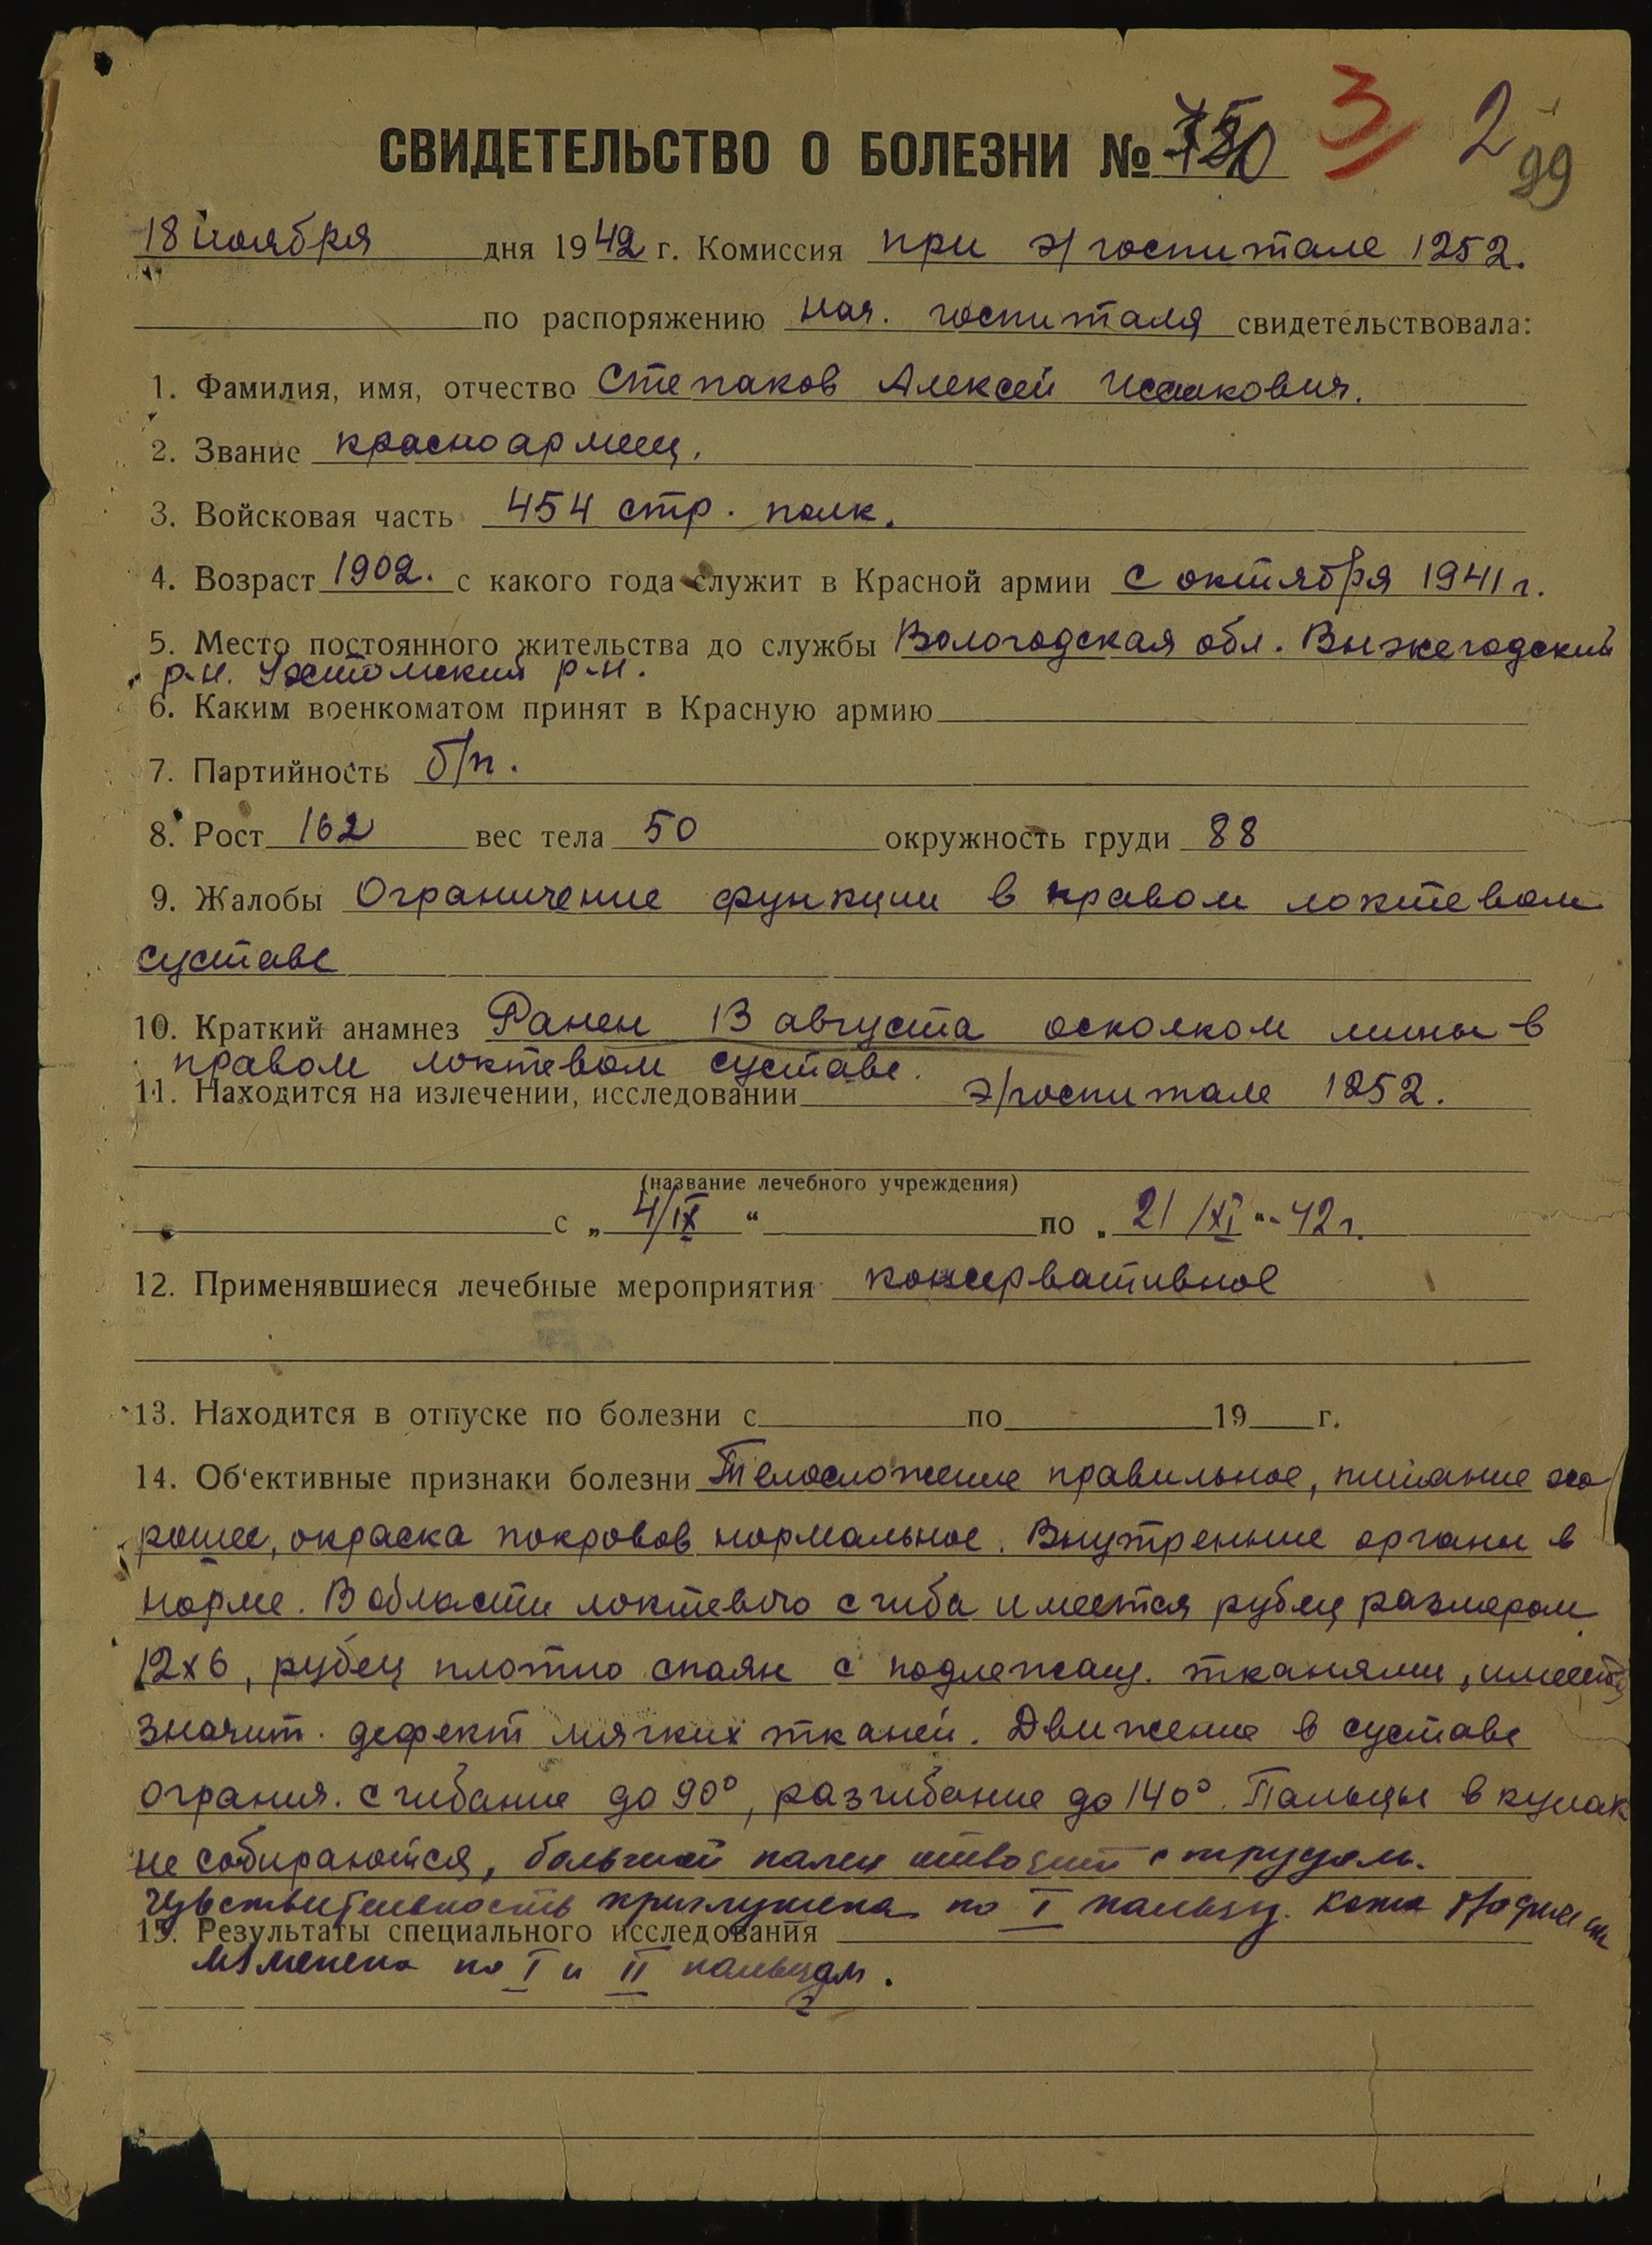 3 2 99
СВИДЕТЕЛЬСТВО О БОЛЕЗНИ №
18 ноября дня 1942 г. Комиссия при э/госпитале 1252.
по распоряжению нач. госпиталя свидетельствовала:
1. Фамилия, имя, отчество Степаков Алексей Исакович.
2. Звание красноармеец.
3. Войсковая часть 454 стр. полк.
4. Возраст 1902. с какого года служит в Красной армии с октября 1941 г.
5. Место постоянного жительства до службы Вологодская обл. Выжегодский
р-н. Ухтомский р-н.
6. Каким военкоматом принят в Красную армию
7. Партийность б/п.
8. Рост 162 вес тела 50 окружность груди 88
9. Жалобы Ограничение функции в правом локтевом
суставе
10. Краткий анамнез Ранен 13 августа осколком мины в
правом локтевом суставе.
11. Находится на излечении, исследовании э/госпитале 1252.
(название лечебного учреждения)
с „ 4/IX “ по „ 21/XI “-42 г.
12. Применявшиеся лечебные мероприятия консервативное
13. Находится в отпуске по болезни с по 19 г.
14. Об'ективные признаки болезни Телосложение правильное, питание хо
рошее, окраска покровов нормальное. Внутренние органы в
норме. В области локтевого сгиба имеется рубец размером
12х6, рубец плотно спаян с подлежащ. тканями, имеется
значит. дефект мягких тканей. Движение в суставе
огранич. сгибание до 90°, разгибание до 140°. Пальцы в кулак
не собираются, большой палец отводит с трудом.
Чувствительность приглушена по I пальцу. Кожа трофически
15. Результаты специального исследования
изменена по I и II пальцам.